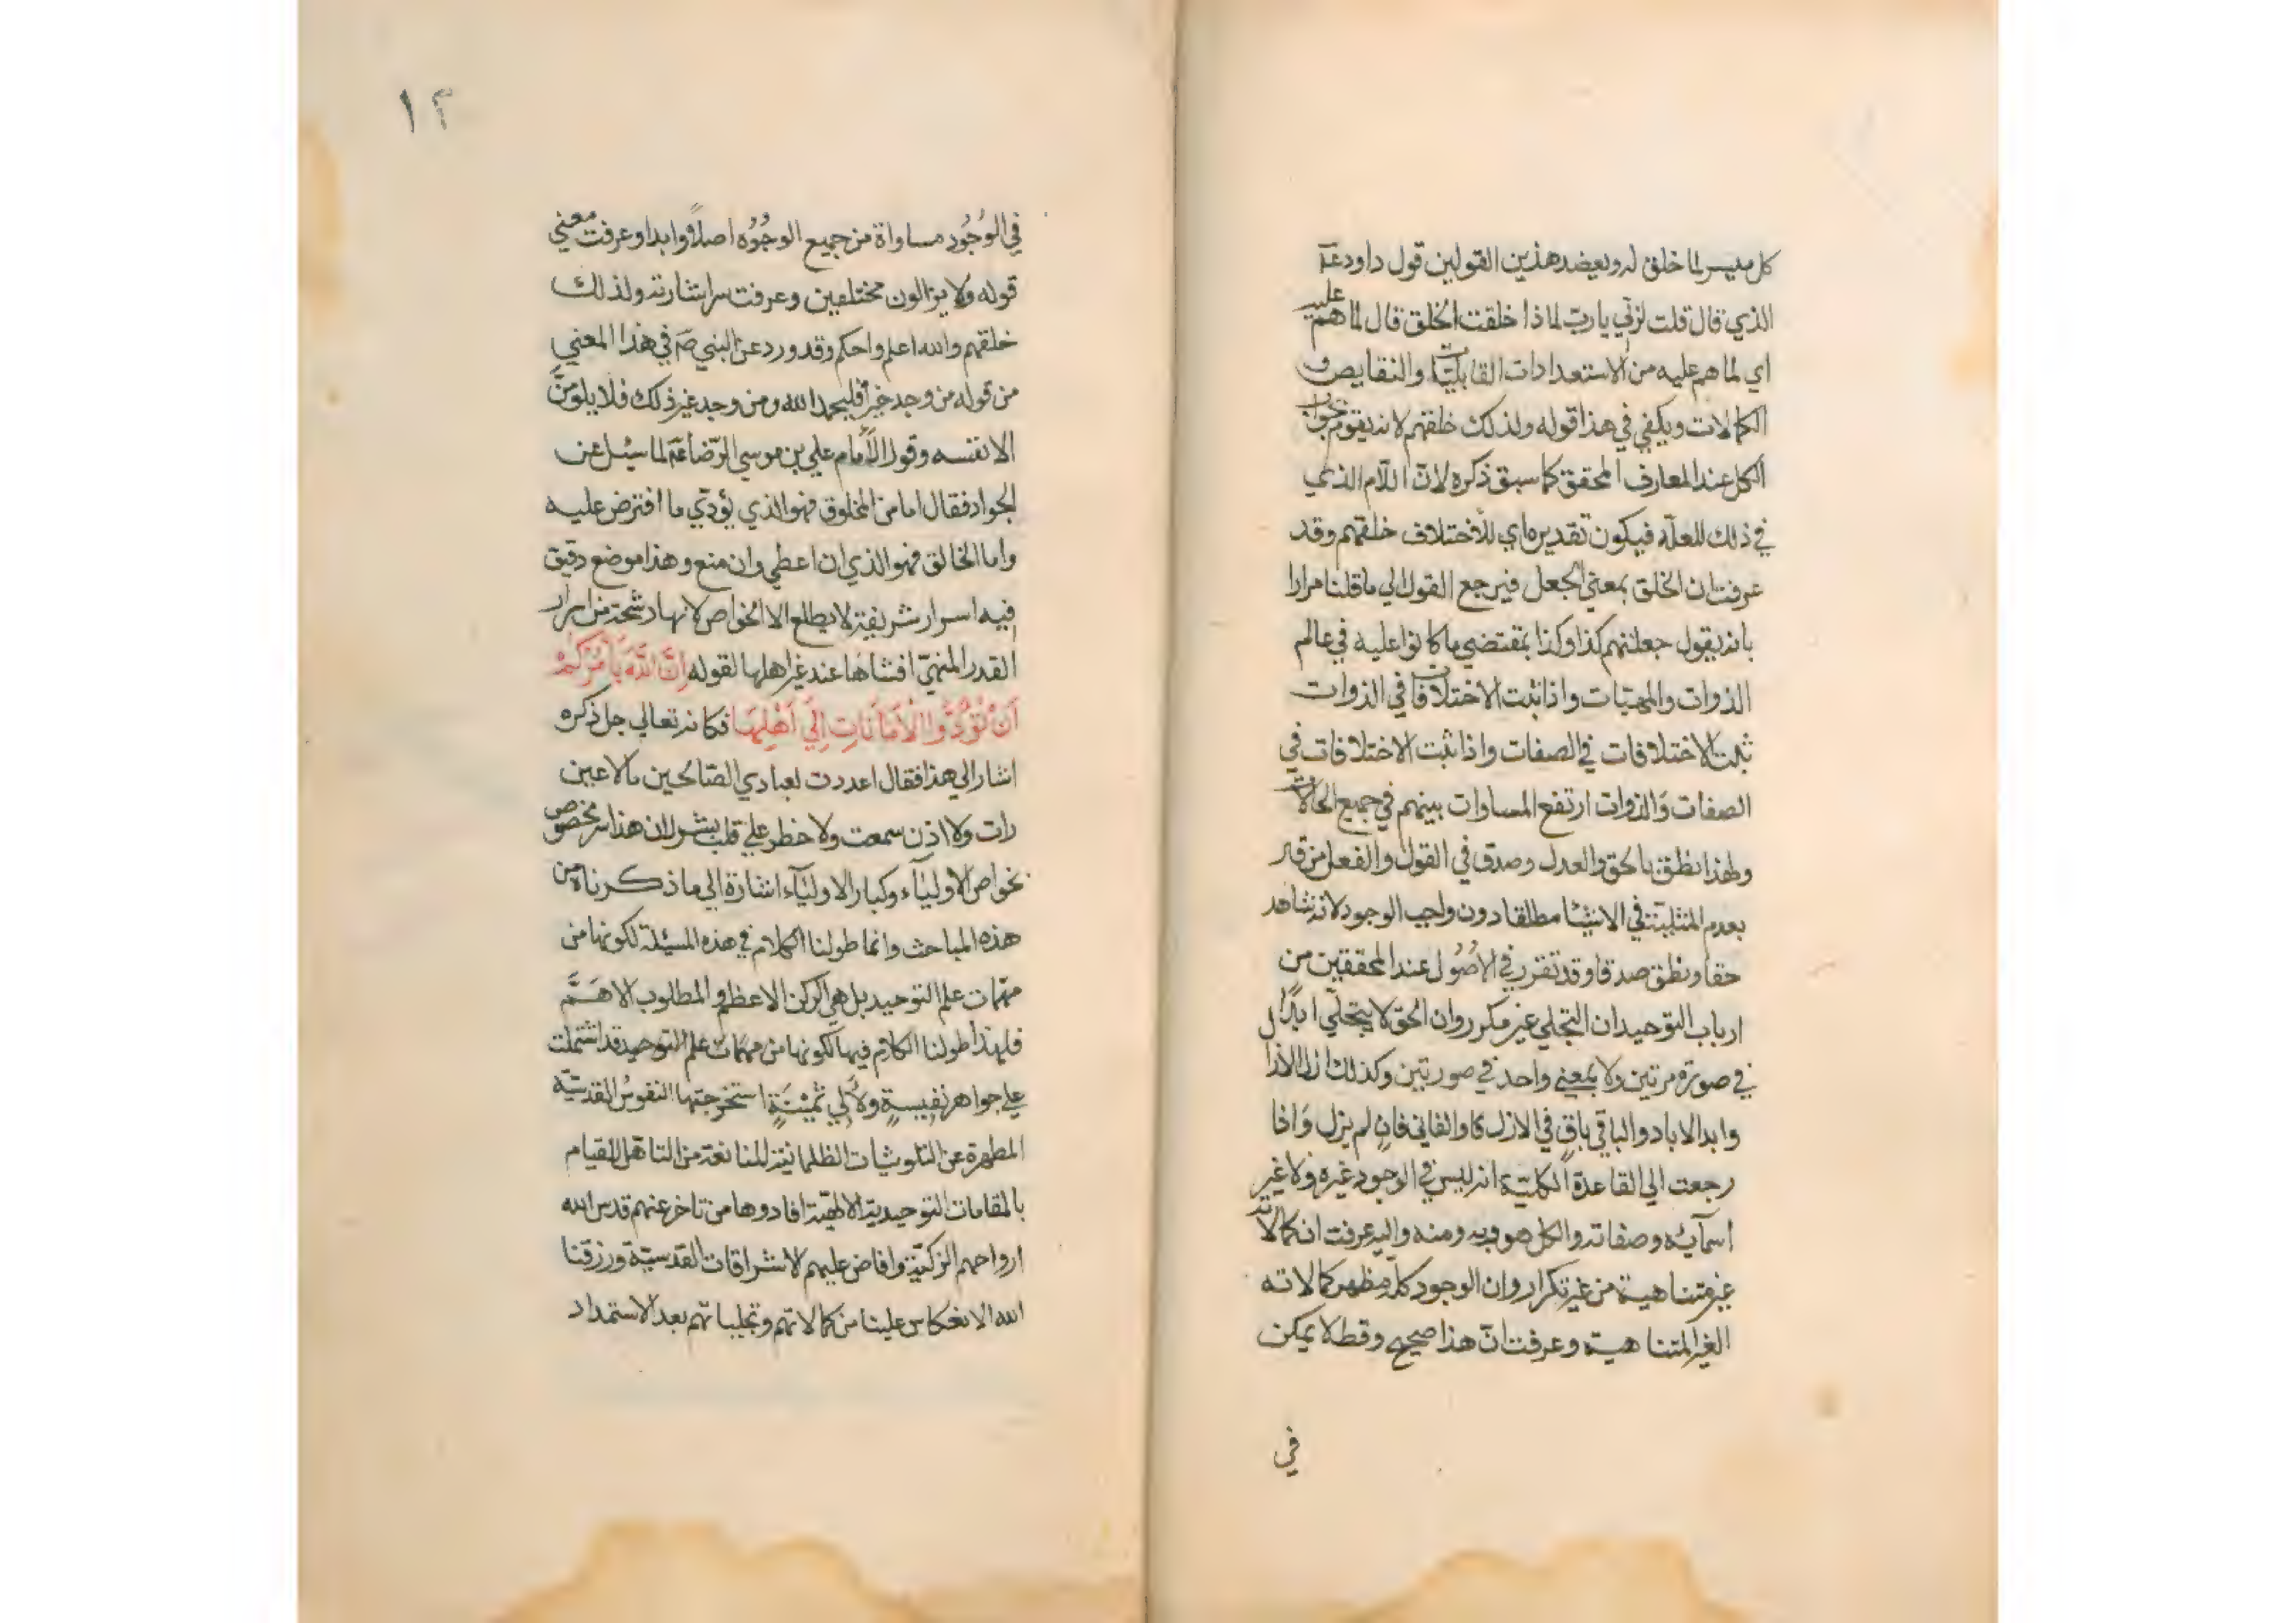 كل ميسر لما خلق له ويعضد هذين القولين قول داود عم
الذي قال قلت لربي يا رب لماذا خلقت الخلق قال لما هم عليه
اي لما هم عليه من الاستعدادات القابليات والنقايص و
الكمالات ويكفي في هذا قوله ولذلك خلقهم لانه يقوم بجواب
الكل عند العارف المحقق كما سبق ذكره لانّ اللّام الذي
في ذلك للعلّة فيكون تقديره اي للاختلاف خلقهم وقد
عرفت ان الخلق بمعني الجعل فيرجع القول الي ما قلنا مرارا
بانه يقول جعلتهم كذا وكذا بمقتضي ما كانوا عليه في عالم
الذوات والمهيّات واذا ثبت الاختلافات في الذوات
ثبت الاختلافات في الصفات واذا ثبت الاختلافات في
الصفات وَالذوات ارتفع المساوات بينهم في جميع الحالات
ولهذا نطق بالحق والعدل وصدق في القول والفعل من قر
بعدم المثلية في الاشيا مطلقا دون واجب الوجود لانه شاهد
حقا ونطق صدقا وقد تقرر في الاُصُول عند المحققين من
ارباب التوحيد ان التجلي غير مكرر وان الحق لا يتجلّي ابدًا
في صورة مرتين ولا بمعني واحد في صورتين وكذلك ازل الازال
وابد الاباد والباقي باقٍ في الازل كا والفاني فانٍ لم يزل وَاذا
رجعت الي القاعدة الكليّة انه ليس في الوجود غيره ولا غير
اسمآئِه وصفاته والكل هو وبه ومنه واليه عرفت ان كمالاته
غير متناهية من غير تكرار وان الوجود كلّه مظهر كمالاته
الغير المتناهية وعرفت انّ هذا صحيح وقط لا يمكن
في
١٢
في الوُجُود مساواة من جميع الوجُوُه اصلاً وابدا وعرفت معني
قوله ولا يزالون مختلفين وعرفت سر اشارته ولذلك
خلقهم والله اعلم واحكم وقد ورد عن النبي صَ في هذا المعني
من قوله من وجد خيراً فليحمد الله ومن وجد غير ذلك فلا يلومنّ
الا نفسه وقول الاَمام علي بن موسي الرّضا عمَ لما سئل عن
الجواد فقال اما من المخلوق فهو الذي يؤدّي ما افترض عليه
واما الخالق فهو الذي ان اعطي وان منع وهذا موضع دقيق
فيه اسرار شريفة لا يطلع الا الخواص لانها رشحة من اسرار
القدر المنهيّ افشاها عند غير اهلها لقوله اِنَّ اللّهَ يَأمُرُكُمْ
اَنْ تُؤَدُّوا الْاَمَانَاتِ اِلَي اَهْلِهَا فكانه تعالي جل ذكره
اشار الي هذا فقال اعددت لعبادي الصّالحين ما لا عين
رات ولا اذن سمعت ولا خطر علي قلب بشر لان هذا سر مخصوص
بخواص الاوليآء وكبار الاوليآء اشارة الي ما ذكرناه من
هذه المباحث وانما طولنا الكلام في هذه المسئلة لكونها من
مهمات علم التوحيد بل هي الركن الاعظم والمطلوب الاهَمَّ
فلهذا طولنا الكلام فيها لكونها من مهمّات علم التوحيد قد اشتملت
علي جواهر نفيسةٍ ولأَلي ثمينَةٍ استخرجتها النفوسُ القدسيّة
المطهرة عن التلوثيات الظلمانية المانعة من التاهل للقيام
بالمقامات التوحيدية الالهيّة افادوها من تاخر عنهم قدس الله
ارواحهم الزكيّة وافاض عليهم لاشراقات القدسيّة ورزقنا
الله الانعكاس علينا من كمالاتهم وتجلياتهم بعد الاستمداد